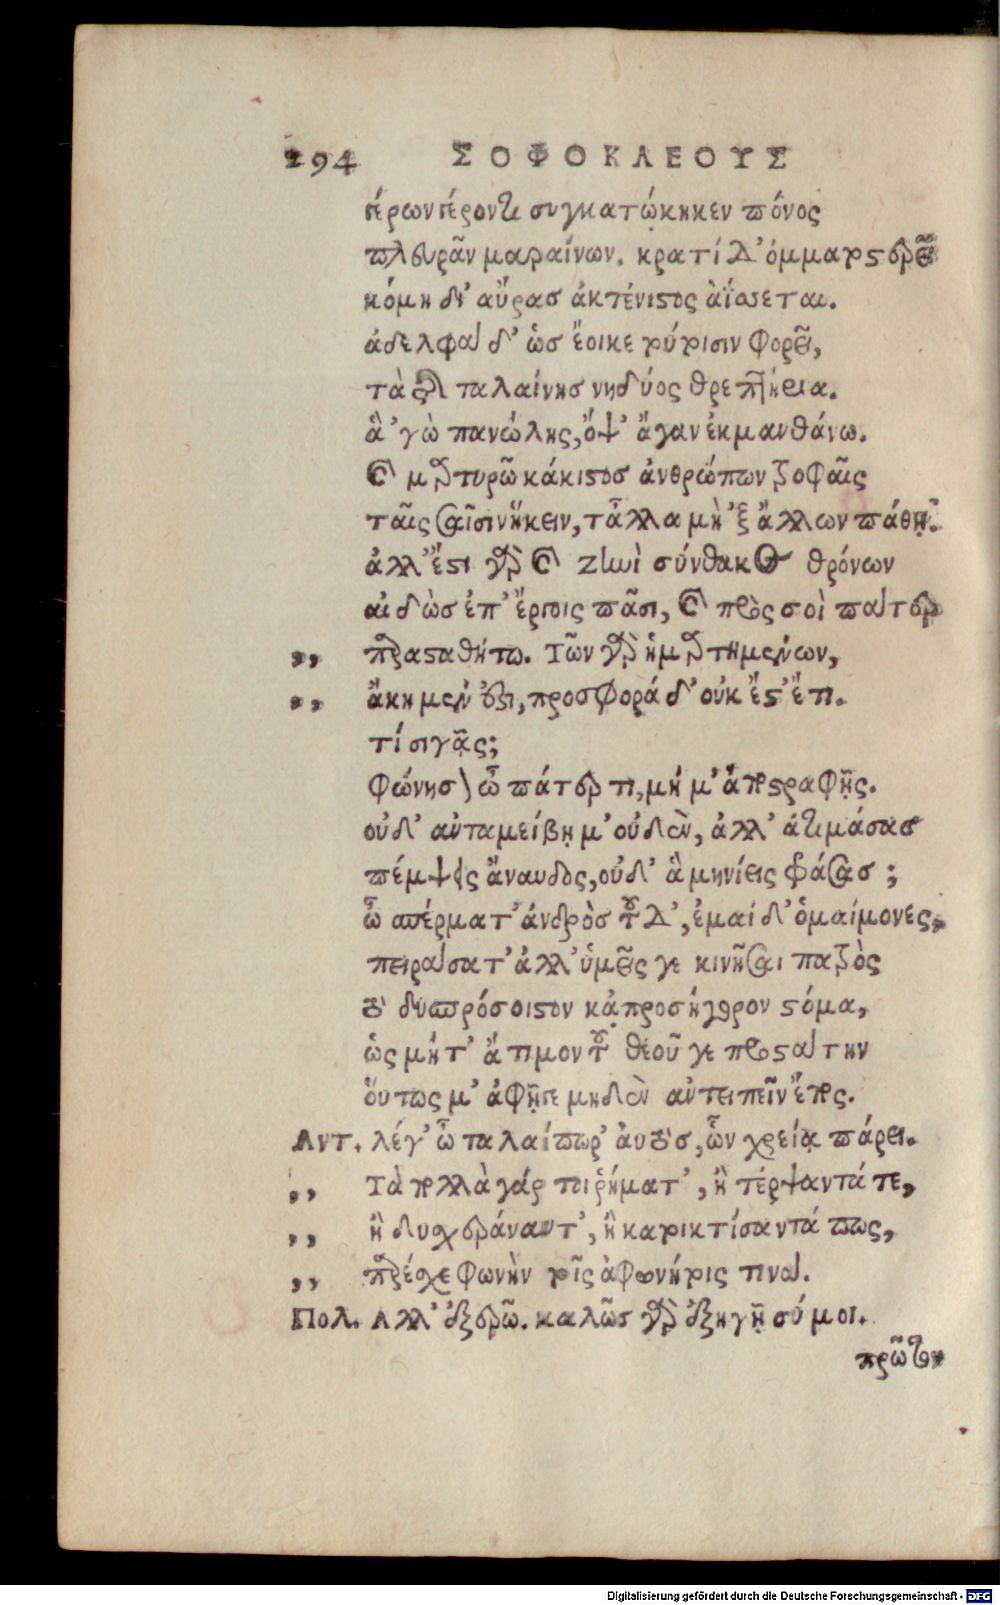 294 ΣΟΦΟΚΛΕΟΥΣ
γέρων γέροντι συγκατῴκηκεν πόνος
πλευρὰν μαραίνων. κρατὶ δ' ὀμματοστερεῖ
κόμη δι' αὔρας ἀκτένιστος ἀΐσσεται.
ἀδελφὰ δ' ὡς ἔοικε τούτοισιν φορεῖ,
τὰ τῆς ταλαίνης νηδύος θρεπτήρια.
ἃ 'γὼ πανώλης, ὄψ' ἄγαν ἐκμανθάνω.
καὶ μαρτυρῶ κάκιστος ἀνθρώπων τροφαῖς
ταῖς σαῖσιν ἥκειν, τἆλλα μὴ 'ξ ἄλλων πάθῃ.
ἀλλ' ἔστι γὰρ καὶ Ζηνὶ σύνθακος θρόνων
αἰδὼς ἐπ' ἔργοις πᾶσι, καὶ πρὸς σοὶ πάτερ
,, παρασταθήτω. Τῶν γὰρ ἡμαρτημένων,
,, ἄκη μέν ἐστι, προσφορὰ δ' οὐκ ἔστ' ἔτι.
τί σιγᾷς;
φώνησον ὦ πάτερ τι, μή μ' ἀποστραφῇς.
οὐδ' ἀνταμείβῃ μ' οὐδὲν, ἀλλ' ἀτιμάσας
πέμψεις ἄναυδος, οὐδ' ἃ μηνίεις φράσας;
ὦ σπέρματ' ἀνδρὸς τοῦδ', ἐμαὶ δ' ὁμαίμονες,
πειράσατ' ἀλλ' ὑμεῖς γε κινῆσαι πατρὸς
τὸ δυσπρόσοιστον κἀπροσήγορον στόμα,
ὡς μήτ' ἄτιμον τοῦ θεοῦ γε προστάτην
οὕτως μ' ἀφῇ γε μηδὲν ἀντειπεῖν ἔπος.
Αντ. λέγ' ὦ ταλαίπωρ' αὐτὸς, ὧν χρείᾳ πάρει.
,, Τὰ πολλὰ γάρ τοι ῥήματ', ἢ τέρψαντά τε,
,, ἢ δυσχεράναντ', ἢ κατοικτίσαντά πως,
,, παρέσχε φωνὴν τοῖς ἀφωνήτοις τινά.
Πολ. Αλλ' ἐξερῶ. καλῶς γὰρ ἐξηγῇ σύ μοι.
πρῶτον
Digitalisierung gefördert durch die Deutsche Forschungsgemeinschaft - DFG